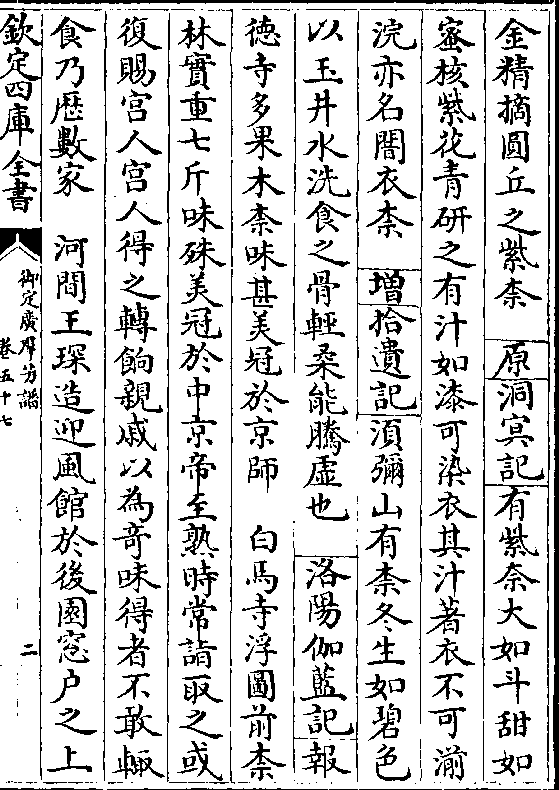 金精摘圓丘之紫柰　原洞冥記有紫柰大如斗甜如
蜜核紫花青研之有汁如漆可染衣其汁著衣不可湔
浣亦名闇衣柰　增拾遺記須彌山有柰冬生如碧色
以玉井水洗食之骨輕柔能騰虛也　洛陽伽藍記報
德寺多果木柰味甚美冠於京師　白馬寺浮圖前柰
林實重七斤味殊美冠於中京帝至熟時常詣取之或
復賜宮人宮人得之轉餉親戚以為竒味得者不敢輙
食乃歴數家　河間王琛造迎風館於後園窓户之上
欽定四庫全書
御定廣羣芳譜
卷五十七
二